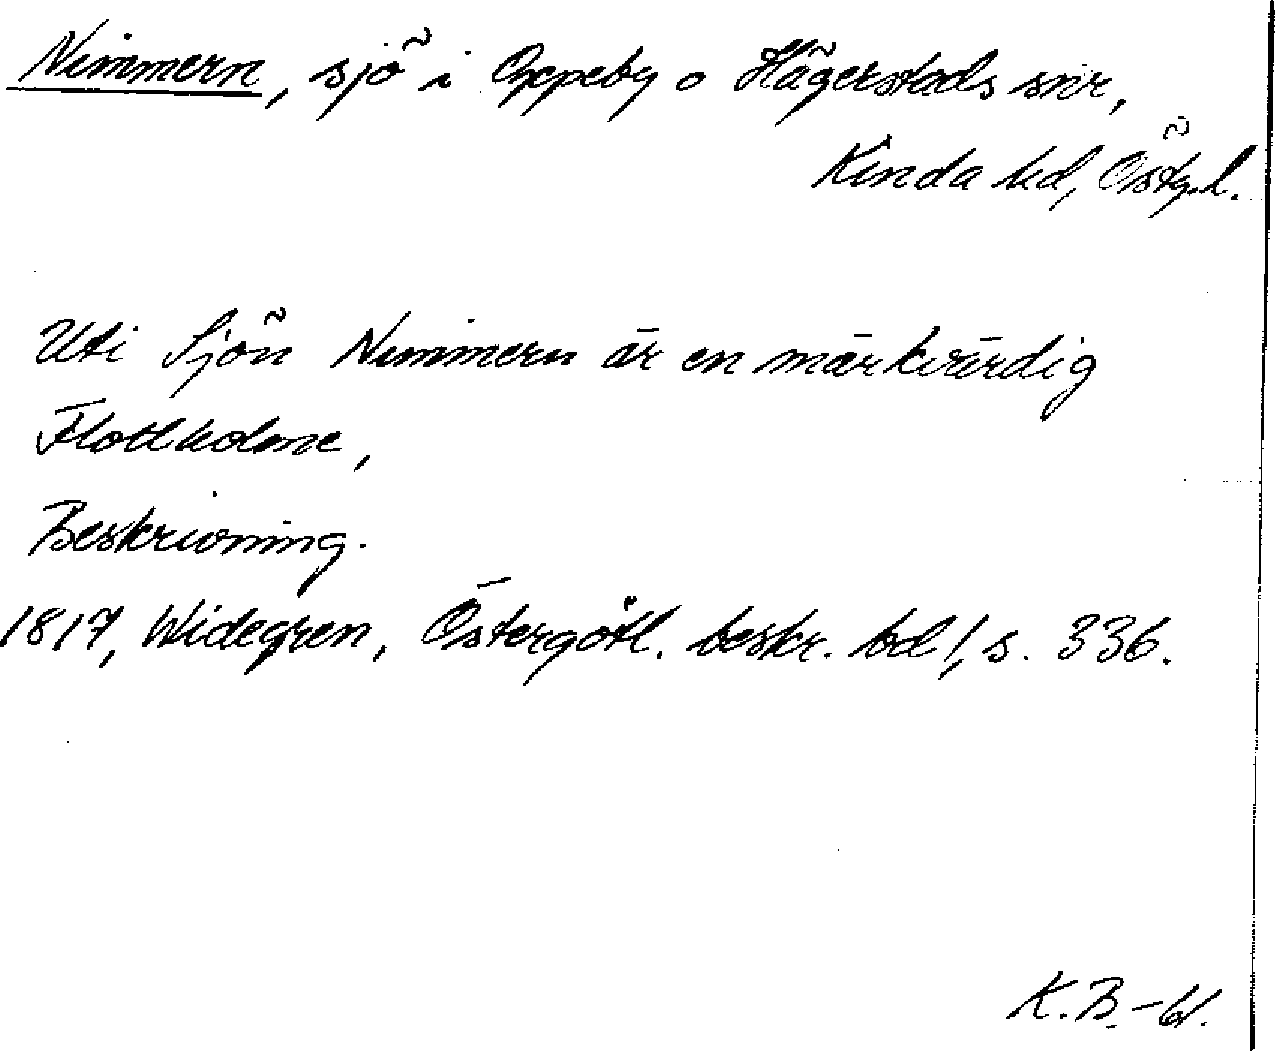 Nimmern, sjö i Oppeby o Hägerstads snr,
Kinda hd, Östg.l.
Uti Sjön Nimmern är en märkvärdig
Flottholme,
Beskrivning.
1817, Widegren, Östergötl. beskr. bd 1, s. 336.
K.B.-61.